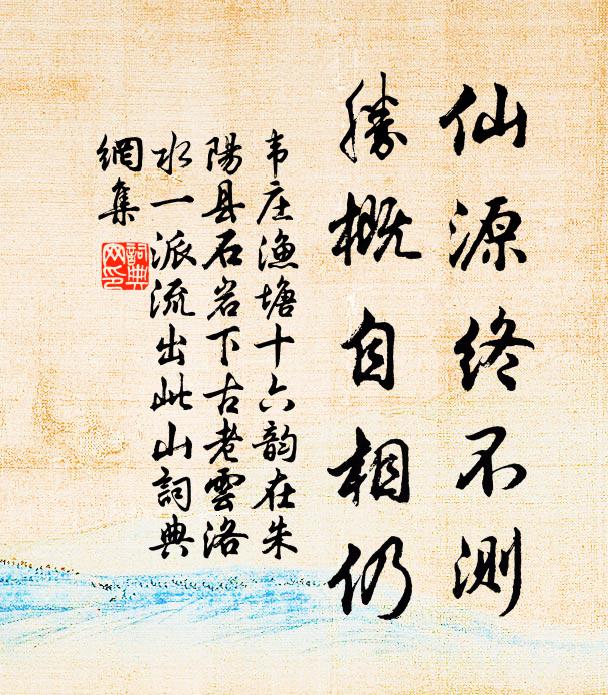 仙源终不测
胜概自相仍
韦庄渔塘十六韵在朱
陽县石岩下古老雲洛
水一派流出此山詞典
網集
詞典
网印